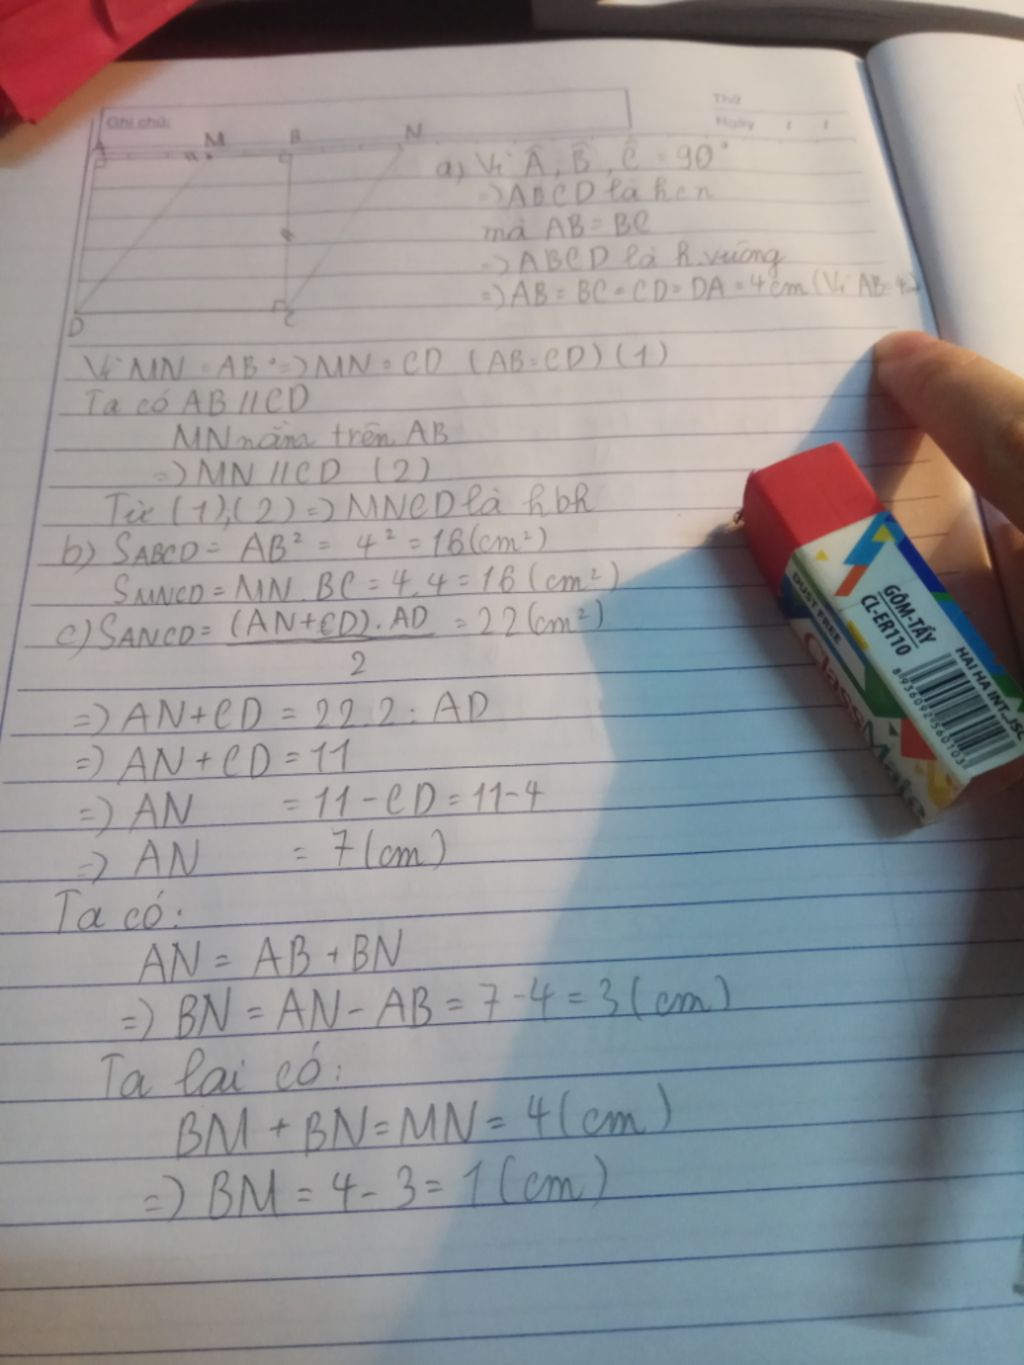 Ghi chú:
Thứ
Ngày / /
A M B N
D C
a) Vì Â, B̂, Ĉ = 90°
=> ABCD là hcn
mà AB = BC
=> ABCD là h.vuông
=> AB = BC = CD = DA = 4cm (Vì AB = 4
Vì MN = AB => MN = CD (AB = CD) (1)
Ta có AB // CD
MN nằm trên AB
=> MN // CD (2)
Từ (1), (2) => MNCD là hbh
b) SABCD = AB² = 4² = 16 (cm²)
SMNCD = MN . BC = 4.4 = 16 (cm²)
c) SANCD = (AN + CD) . AD / 2 = 22 (cm²)
=> AN + CD = 22.2 : AD
=> AN + CD = 11
=> AN = 11 - CD = 11 - 4
=> AN = 7 (cm)
Ta có:
AN = AB + BN
=> BN = AN - AB = 7 - 4 = 3 (cm)
Ta lại có:
BM + BN = MN = 4 (cm)
=> BM = 4 - 3 = 1 (cm)
GÔM-TẨY
CL-ER110
DUST FREE
HAI HA INT.,JSC
8936092560103
ClassMate